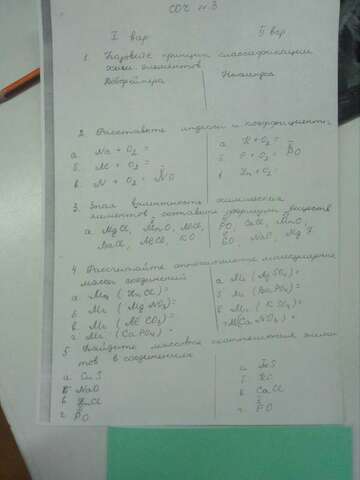 СОЧ №3
I вар II вар
1. Назовите принцип классификации
хим. элементов
Доберейнера Ньюлендса
2. Расставьте индексы и коэффициенты
а. Na + O2 = а. K + O2 =
б. Al + O2 = б. P + O2 = PO
в. N + O2 = NO в. Zn + O2 =
3. Зная валентность химических
элементов, составьте формулы веществ
а. MgCl, MnO, NCl, PO, CaCl, MnO,
BaCl, AlCl, KO SO, NaO,
4. Рассчитайте относительную молекулярную
массу соединений
а. Mr (ZnCl2)= а. Mr (Ag SO4)=
б. Mr (Mg NO3)= б. Mr (Ba PO4)=
в. Mr (Al CO3)= в. Mr (K SO4)=
г. Mr (Ca PO4)= г. Mr(Ca NO3)=
5. Найдите массовые соотношения элемен-
тов в соединениях
а. CuS а.
б. NaO б.
в. ZnCl в. CaCl
г. PO г. PO